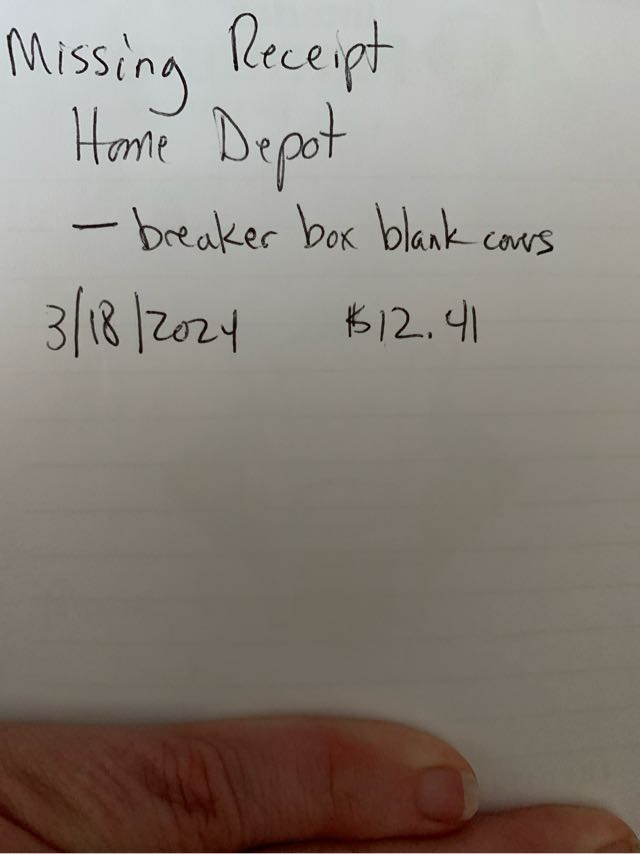 Missing Receipt
Home Depot
- breaker box blank covers
3/18/2024 $12.41